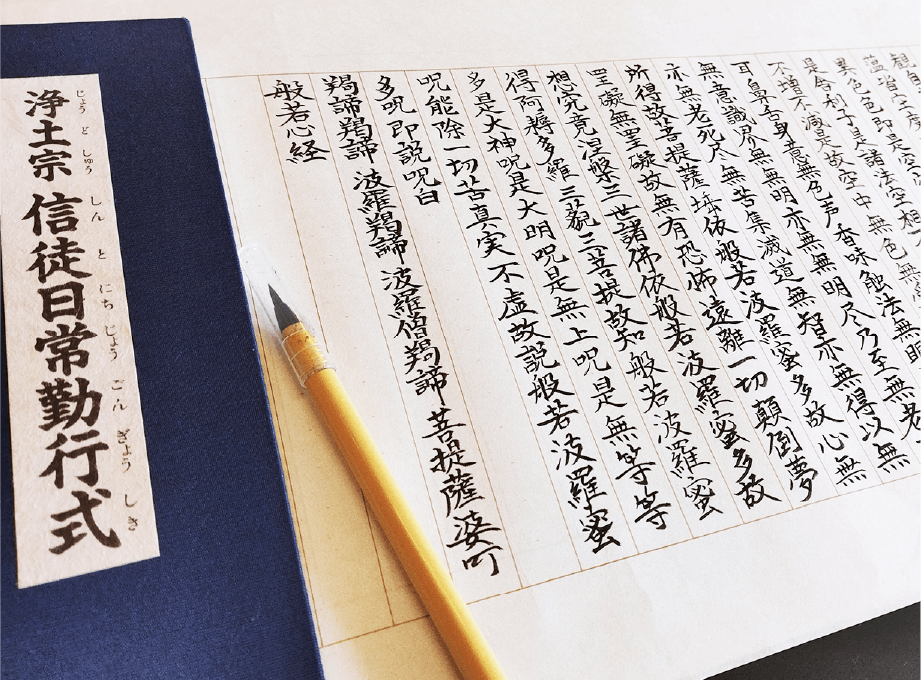 浄土宗 信徒日常勤行式
じょうどしゅう しんとにちじょうごんぎょうしき
蘊皆空度
異色色即是
是舎利子是諸法空相
不増不減是故空中無色無
耳鼻舌身意無色声香味触法無眼
無意識界無無明亦無無明尽乃至無老
亦無老死尽無苦集滅道無智亦無得以無
所得故菩提薩埵依般若波羅蜜多故心無
罣礙無罣礙故無有恐怖遠離一切顛倒夢
想究竟涅槃三世諸佛依般若波羅蜜多故
得阿耨多羅三藐三菩提故知般若波羅蜜
多是大神呪是大明呪是無上呪是無等等
呪能除一切苦真実不虚故説般若波羅蜜
多呪即説呪曰
羯諦羯諦 波羅羯諦 波羅僧羯諦 菩提薩婆呵
般若心経